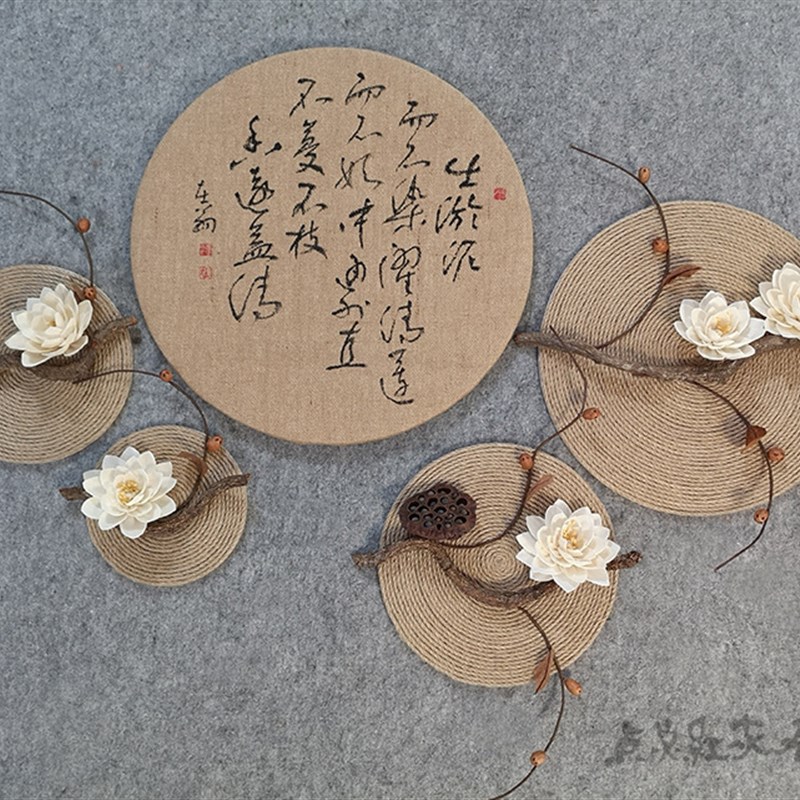 出淤泥
而不染濯清莲
而不妖中通外直
不蔓不枝
香远益清